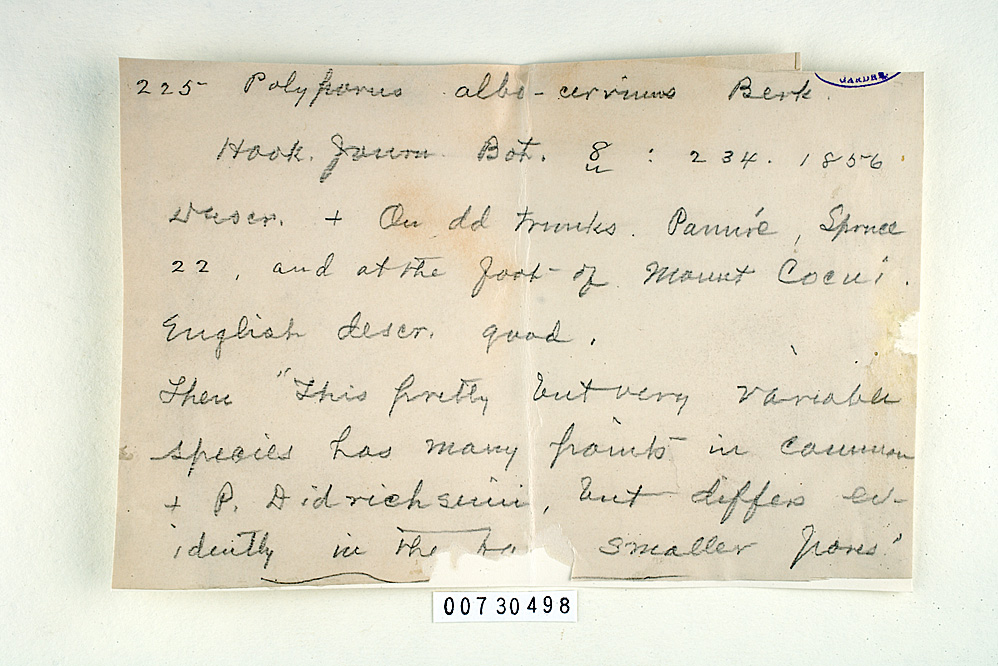 225 Polyporus albo-cervinus Berk.
Hook. Journ. Bot. 8 : 234. 1856
Descr. + On dd trunks. Panuré, Spruce
22, and at the foot of Mount Cocui.
English descr. good.
Then "This pretty but very variable
species has many points in common
+ P. Didrichsenii, but differs ev-
idently in the smaller pores."
00730498